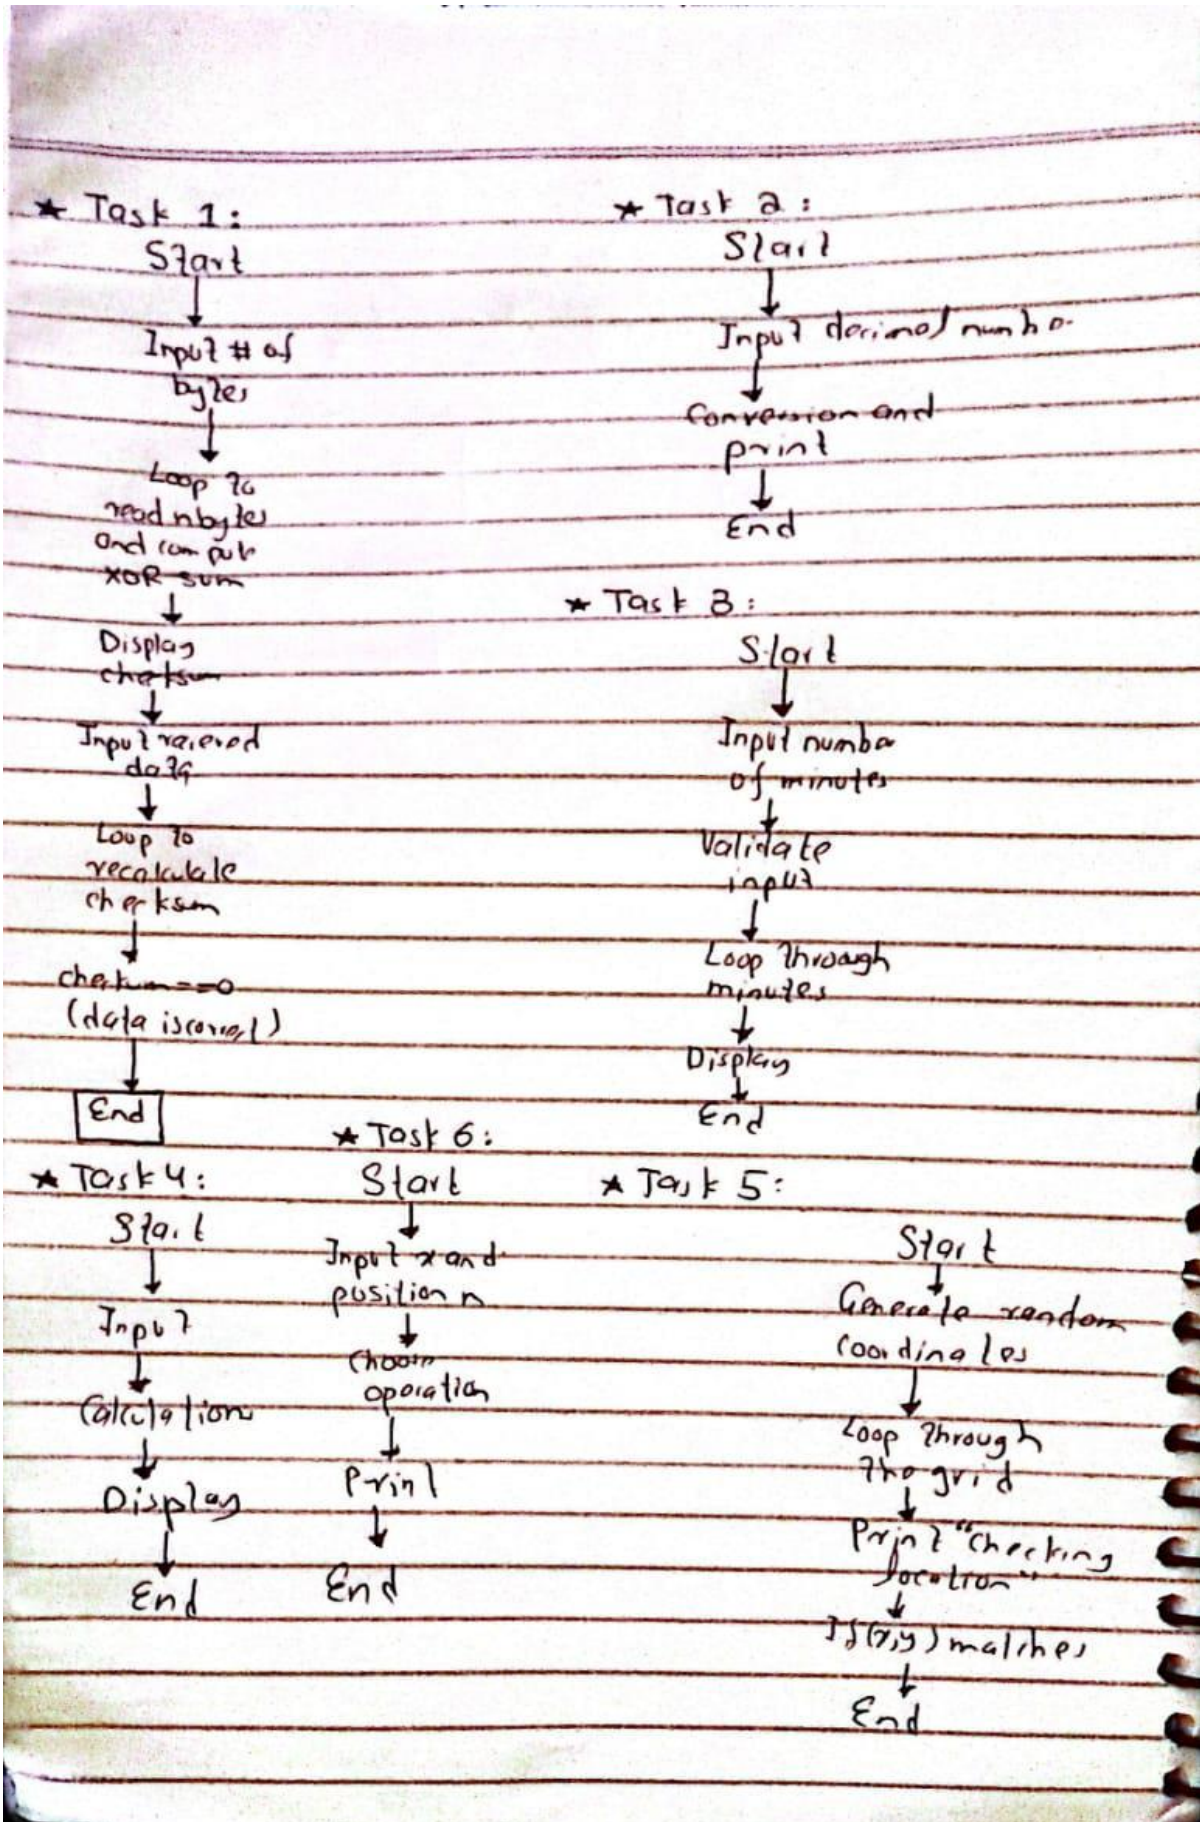 ★ Task 1:
Start
Input # of
bytes
Loop to
read n bytes
and compute
XOR sum
Display
checksum
Input recieved
data
Loop to
recalculate
checksum
checksum==0
(data is correct)
End
★ Task 2:
Start
Input decimal number
Conversion and
print
End
★ Task 3:
Start
Input number
of minutes
Validate
input
Loop through
minutes
Display
End
★ Task 4:
Start
Input
Calculation
Display
End
★ Task 6:
Start
Input x and
position n
Choose
operation
Print
End
★ Task 5:
Start
Generate random
coordinates
Loop through
the grid
Print "Checking
location"
If(x,y) matches
End